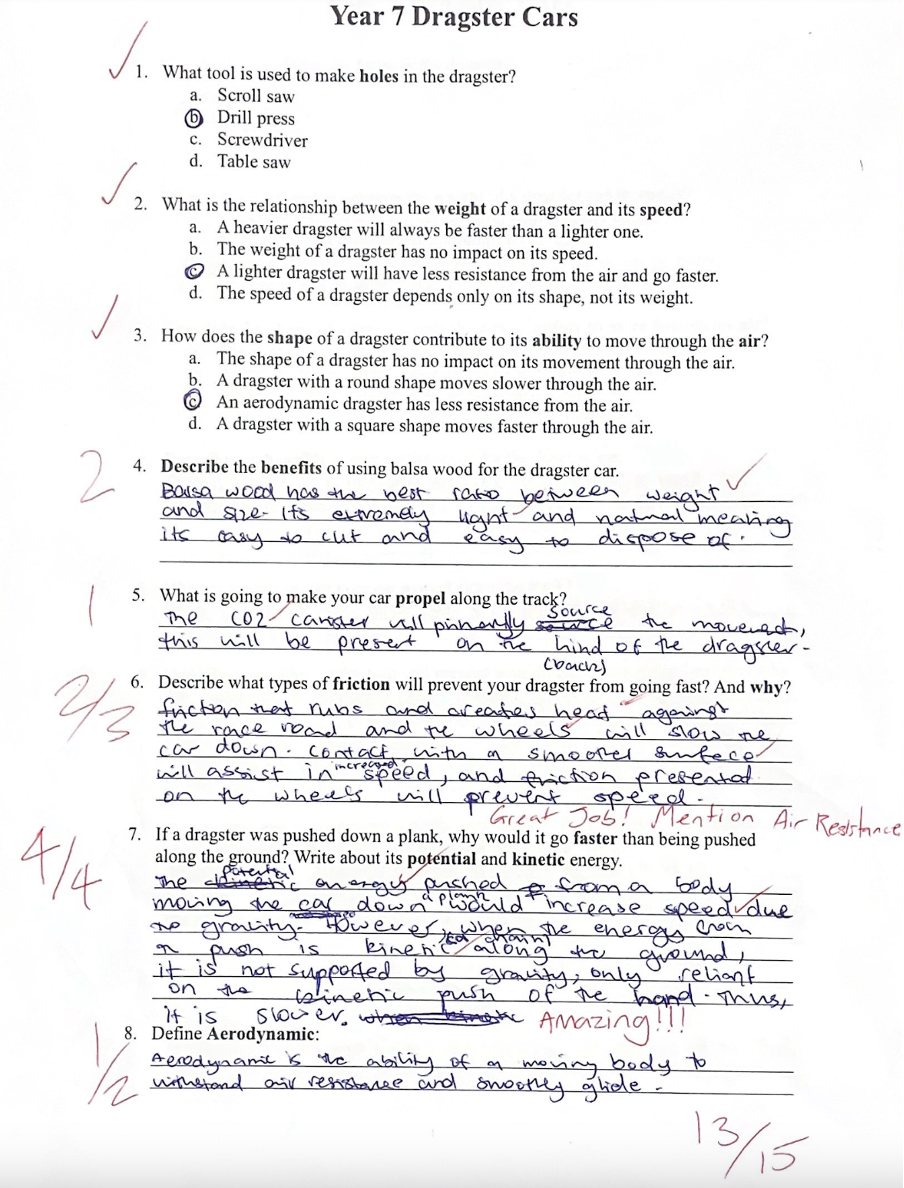 Year 7 Dragster Cars
1. What tool is used to make holes in the dragster?
a. Scroll saw
b. Drill press
c. Screwdriver
d. Table saw
2. What is the relationship between the weight of a dragster and its speed?
a. A heavier dragster will always be faster than a lighter one.
b. The weight of a dragster has no impact on its speed.
c. A lighter dragster will have less resistance from the air and go faster.
d. The speed of a dragster depends only on its shape, not its weight.
3. How does the shape of a dragster contribute to its ability to move through the air?
a. The shape of a dragster has no impact on its movement through the air.
b. A dragster with a round shape moves slower through the air.
c. An aerodynamic dragster has less resistance from the air.
d. A dragster with a square shape moves faster through the air.
2
4. Describe the benefits of using balsa wood for the dragster car.
Balsa wood has the best ratio between weight
and size. Its extremely light and natural meaning
its easy to cut and easy to dispose of.
1
5. What is going to make your car propel along the track?
source
The CO2 canister will source the movement,
this will be present on the hind of the dragster.
(back)
6. Describe what types of friction will prevent your dragster from going fast? And why?
2/3
friction that rubs and creates heat against
the race road and the wheels will slow the
car down. Contact with a smoother surface
increased
will assist in speed, and friction presented
on the wheels will prevent speed.
Great Job! Mention Air Resistance
7. If a dragster was pushed down a plank, why would it go faster than being pushed
along the ground? Write about its potential and kinetic energy.
4/4
potential
The kinetic energy pushed from a body
a plank
moving the car down would increase speed due
to gravity. However, when the energy from
a push is kinetic along the ground,
it is not supported by gravity, only reliant
on the kinetic push of the hand. Thus,
it is slower. when kinetic
Amazing!!!
8. Define Aerodynamic:
1/2
Aerodynamic is the ability of a moving body to
withstand air resistance and smoothly glide.
13/15